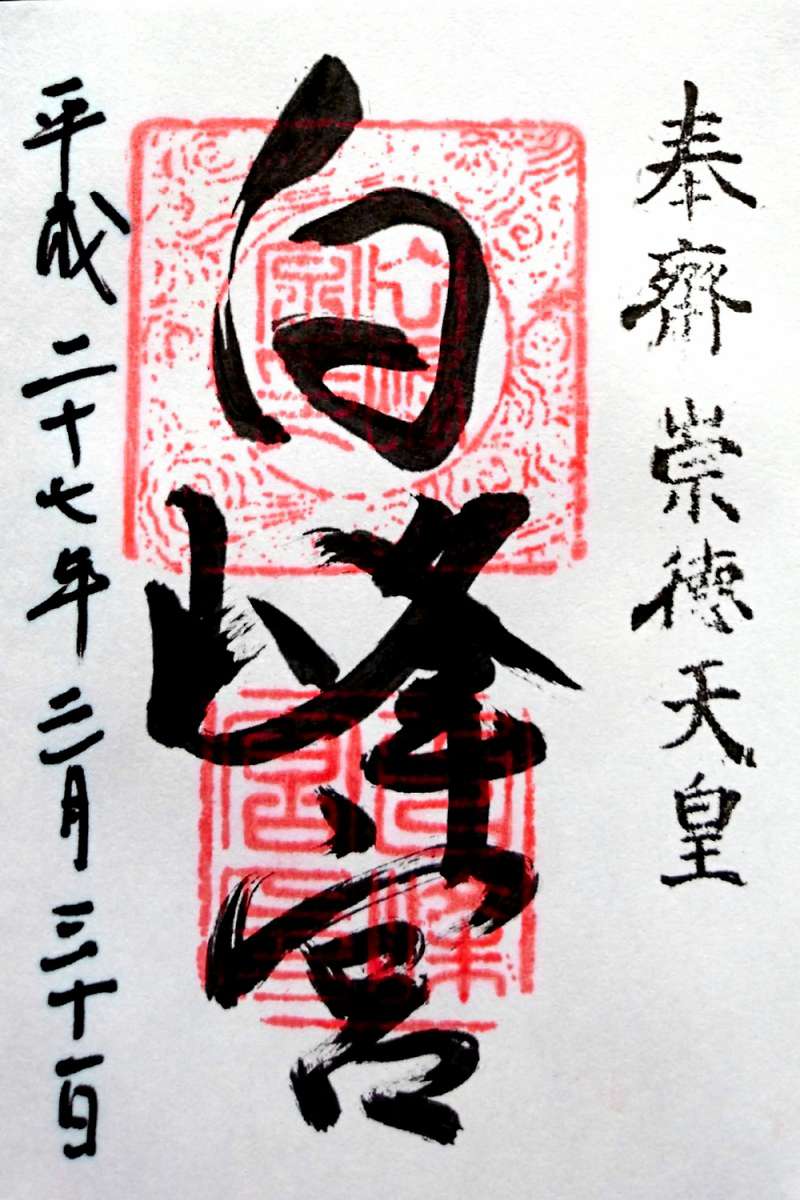 奉齋 崇徳天皇
白峰宮
平成二十七年三月三十一日